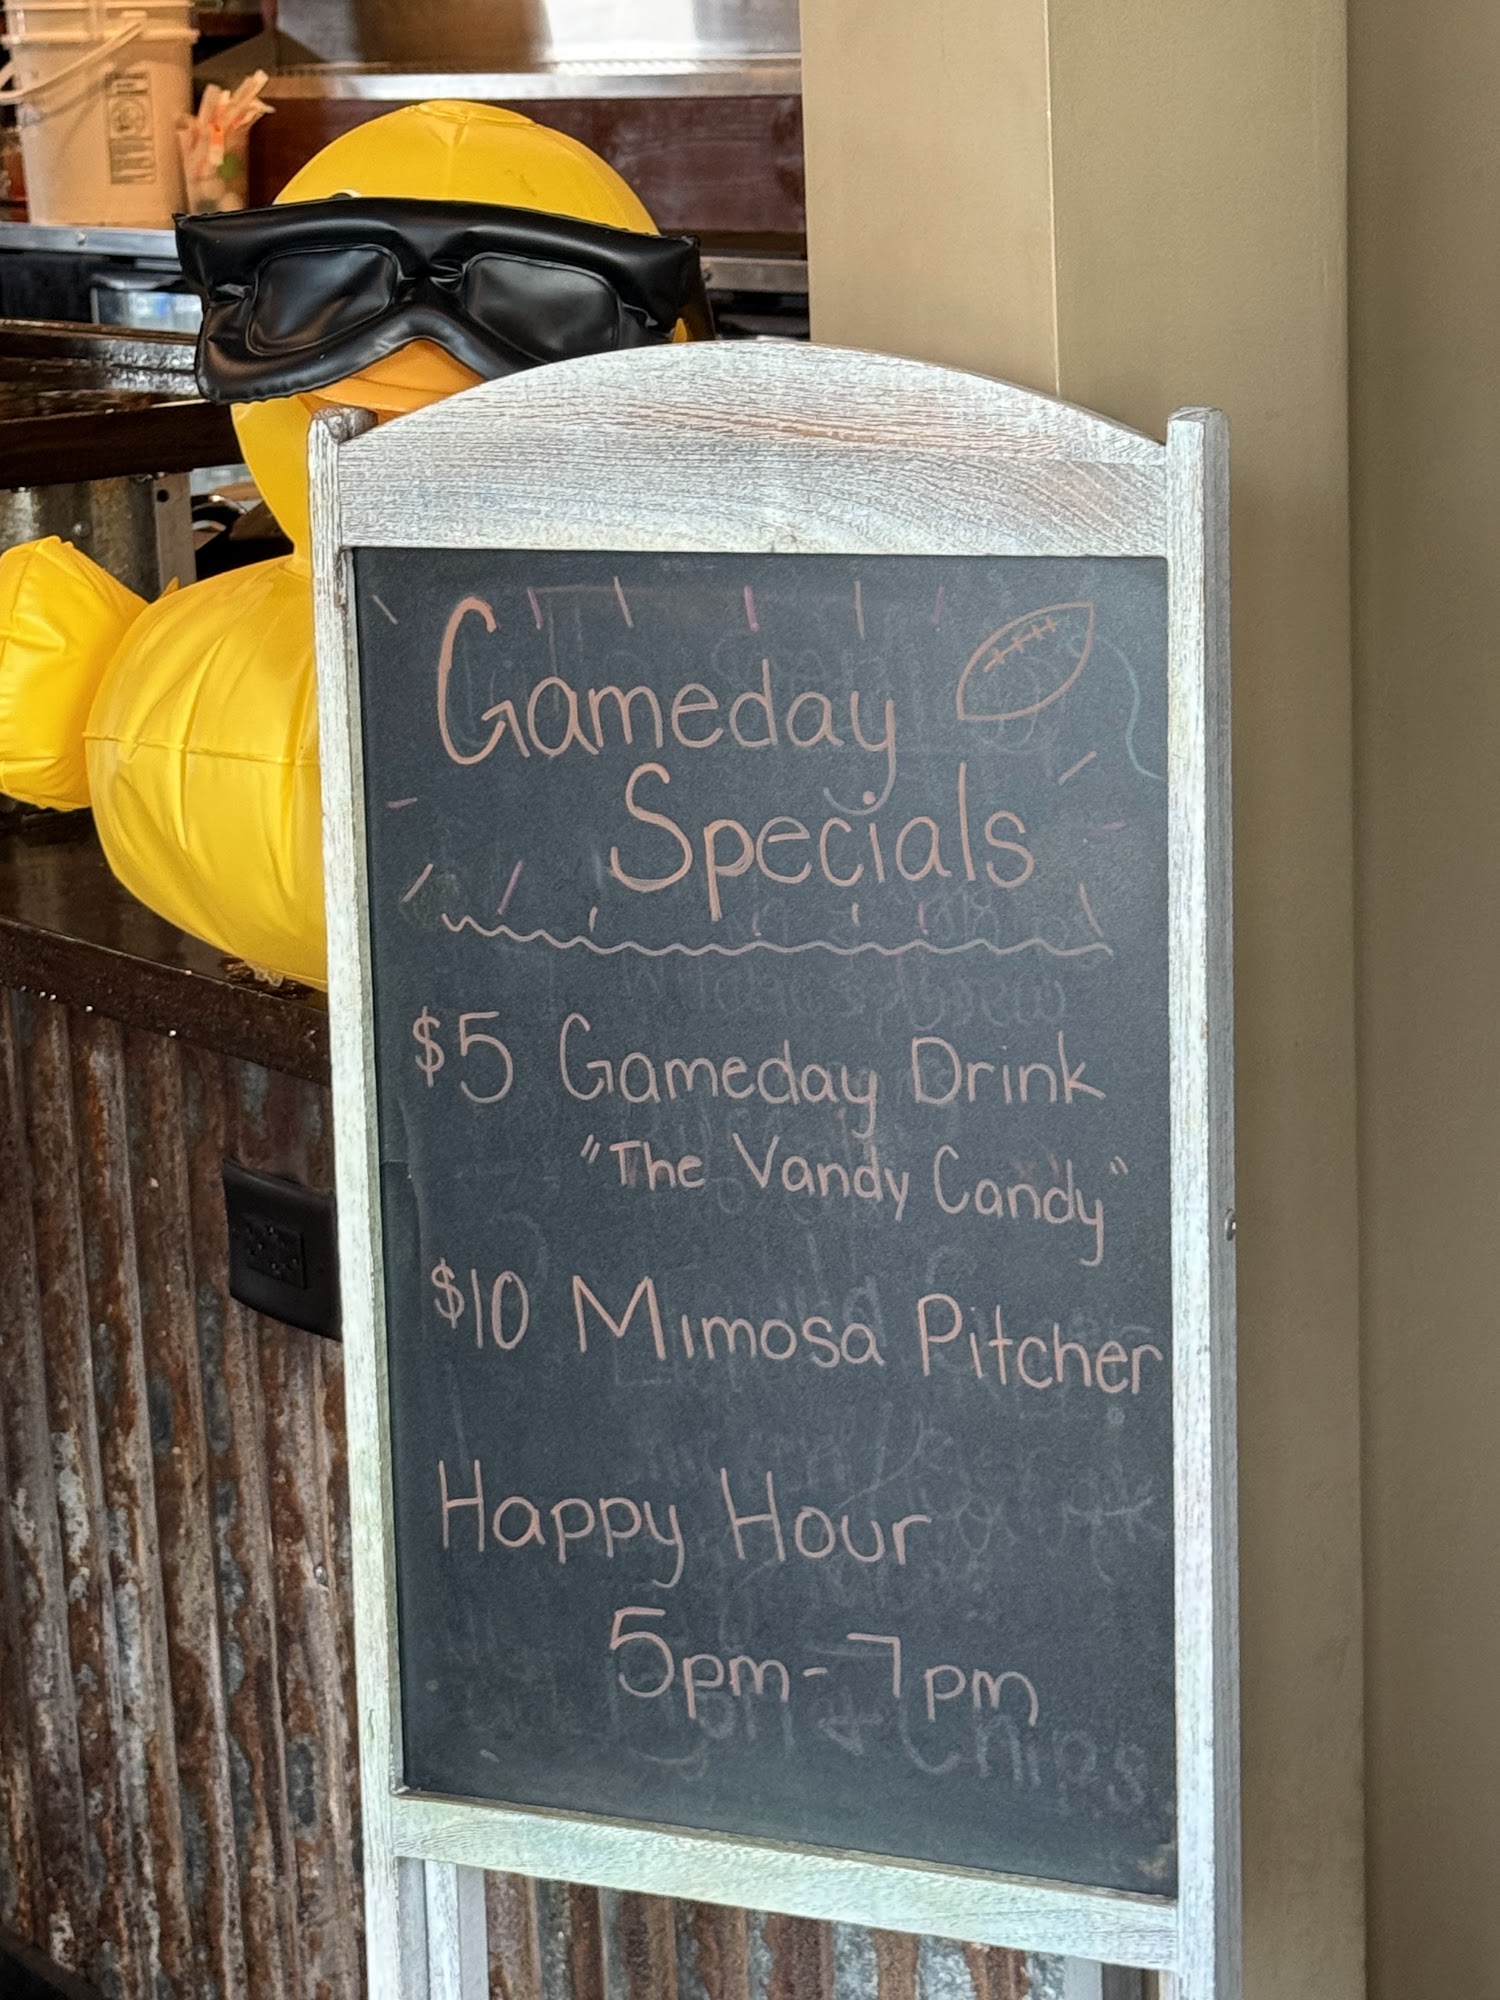 Gameday
Specials
$5 Gameday Drink
"The Vandy Candy"
$10 Mimosa Pitcher
Happy Hour
5pm-7pm
Chips